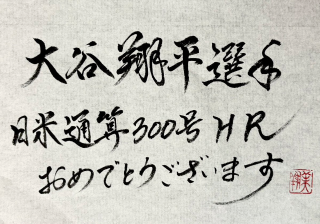 大谷翔平選手
日米通算300号HR
おめでとうございます